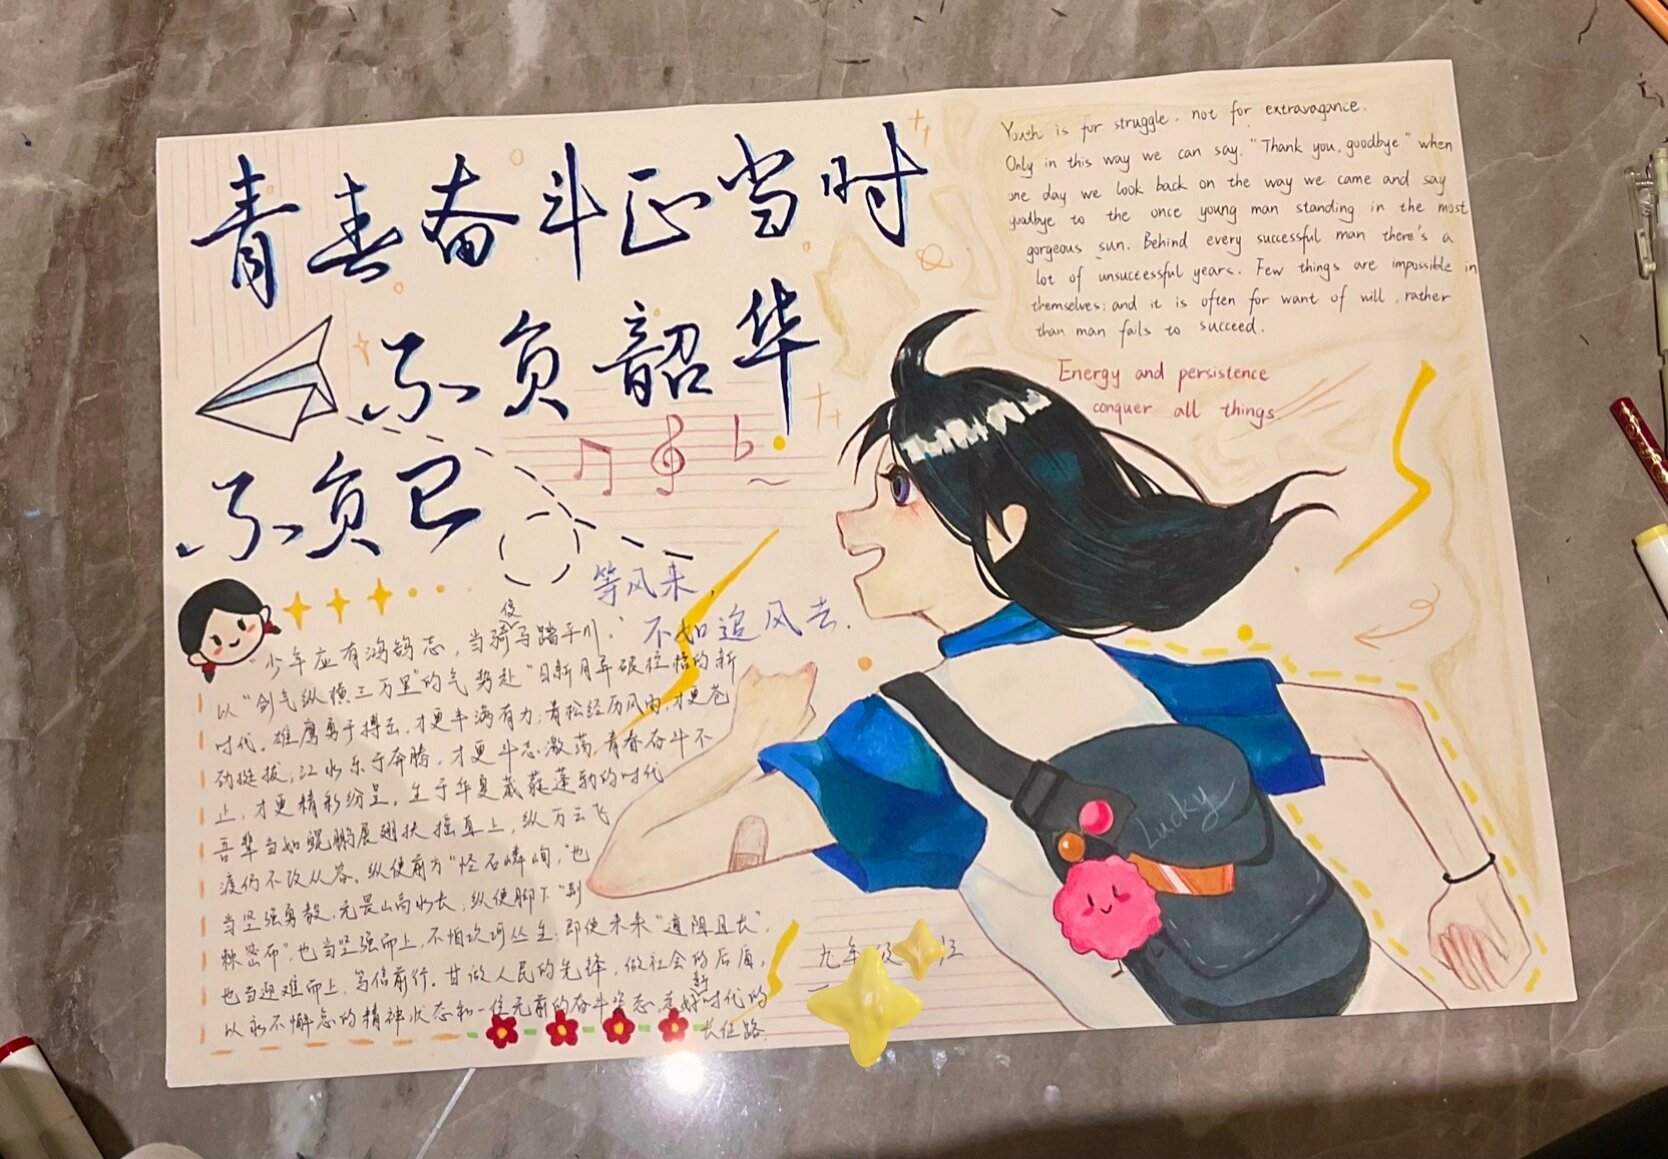 青春奋斗正当时
不负韶华
不负己
Youth is for struggle, not for extravagance.
Only in this way we can say, "Thank you, goodbye" when
one day we look back on the way we came and say
goodbye to the once young man standing in the most
gorgeous sun. Behind every successful man there's a
lot of unsuccessful years. Few things are impossible in
themselves; and it is often for want of will, rather
than man fails to succeed.
Energy and persistence
conquer all things
等风来，
不如追风去.
"少年应有鸿鹄志，当骑骏马踏平川."
以"剑气纵横三万里"的气势赴"日新月异破桎梏的新
时代。雄鹰勇于搏击，才更丰满有力；青松经历风雨，才更苍
劲挺拔；江水乐于奔腾，才更斗志激荡，青春奋斗不
止，才更精彩纷呈。生于华夏葳蕤蓬勃的时代
吾辈当如鲲鹏展翅扶摇直上，纵万云飞
渡仍不改从容。纵使前方"怪石嶙峋，"也
当坚强勇毅，无畏山高水长，纵使脚下"荆
棘密布"，也当坚强而上，不怕坎坷丛生；即使未来"道阻且长"，
也当迎难而上，笃信前行。甘做人民的先锋，做社会的后盾，
以永不懈怠的精神状态和一往无前的奋斗姿态，走好新时代的
长征路.
Lucky
九年级 江